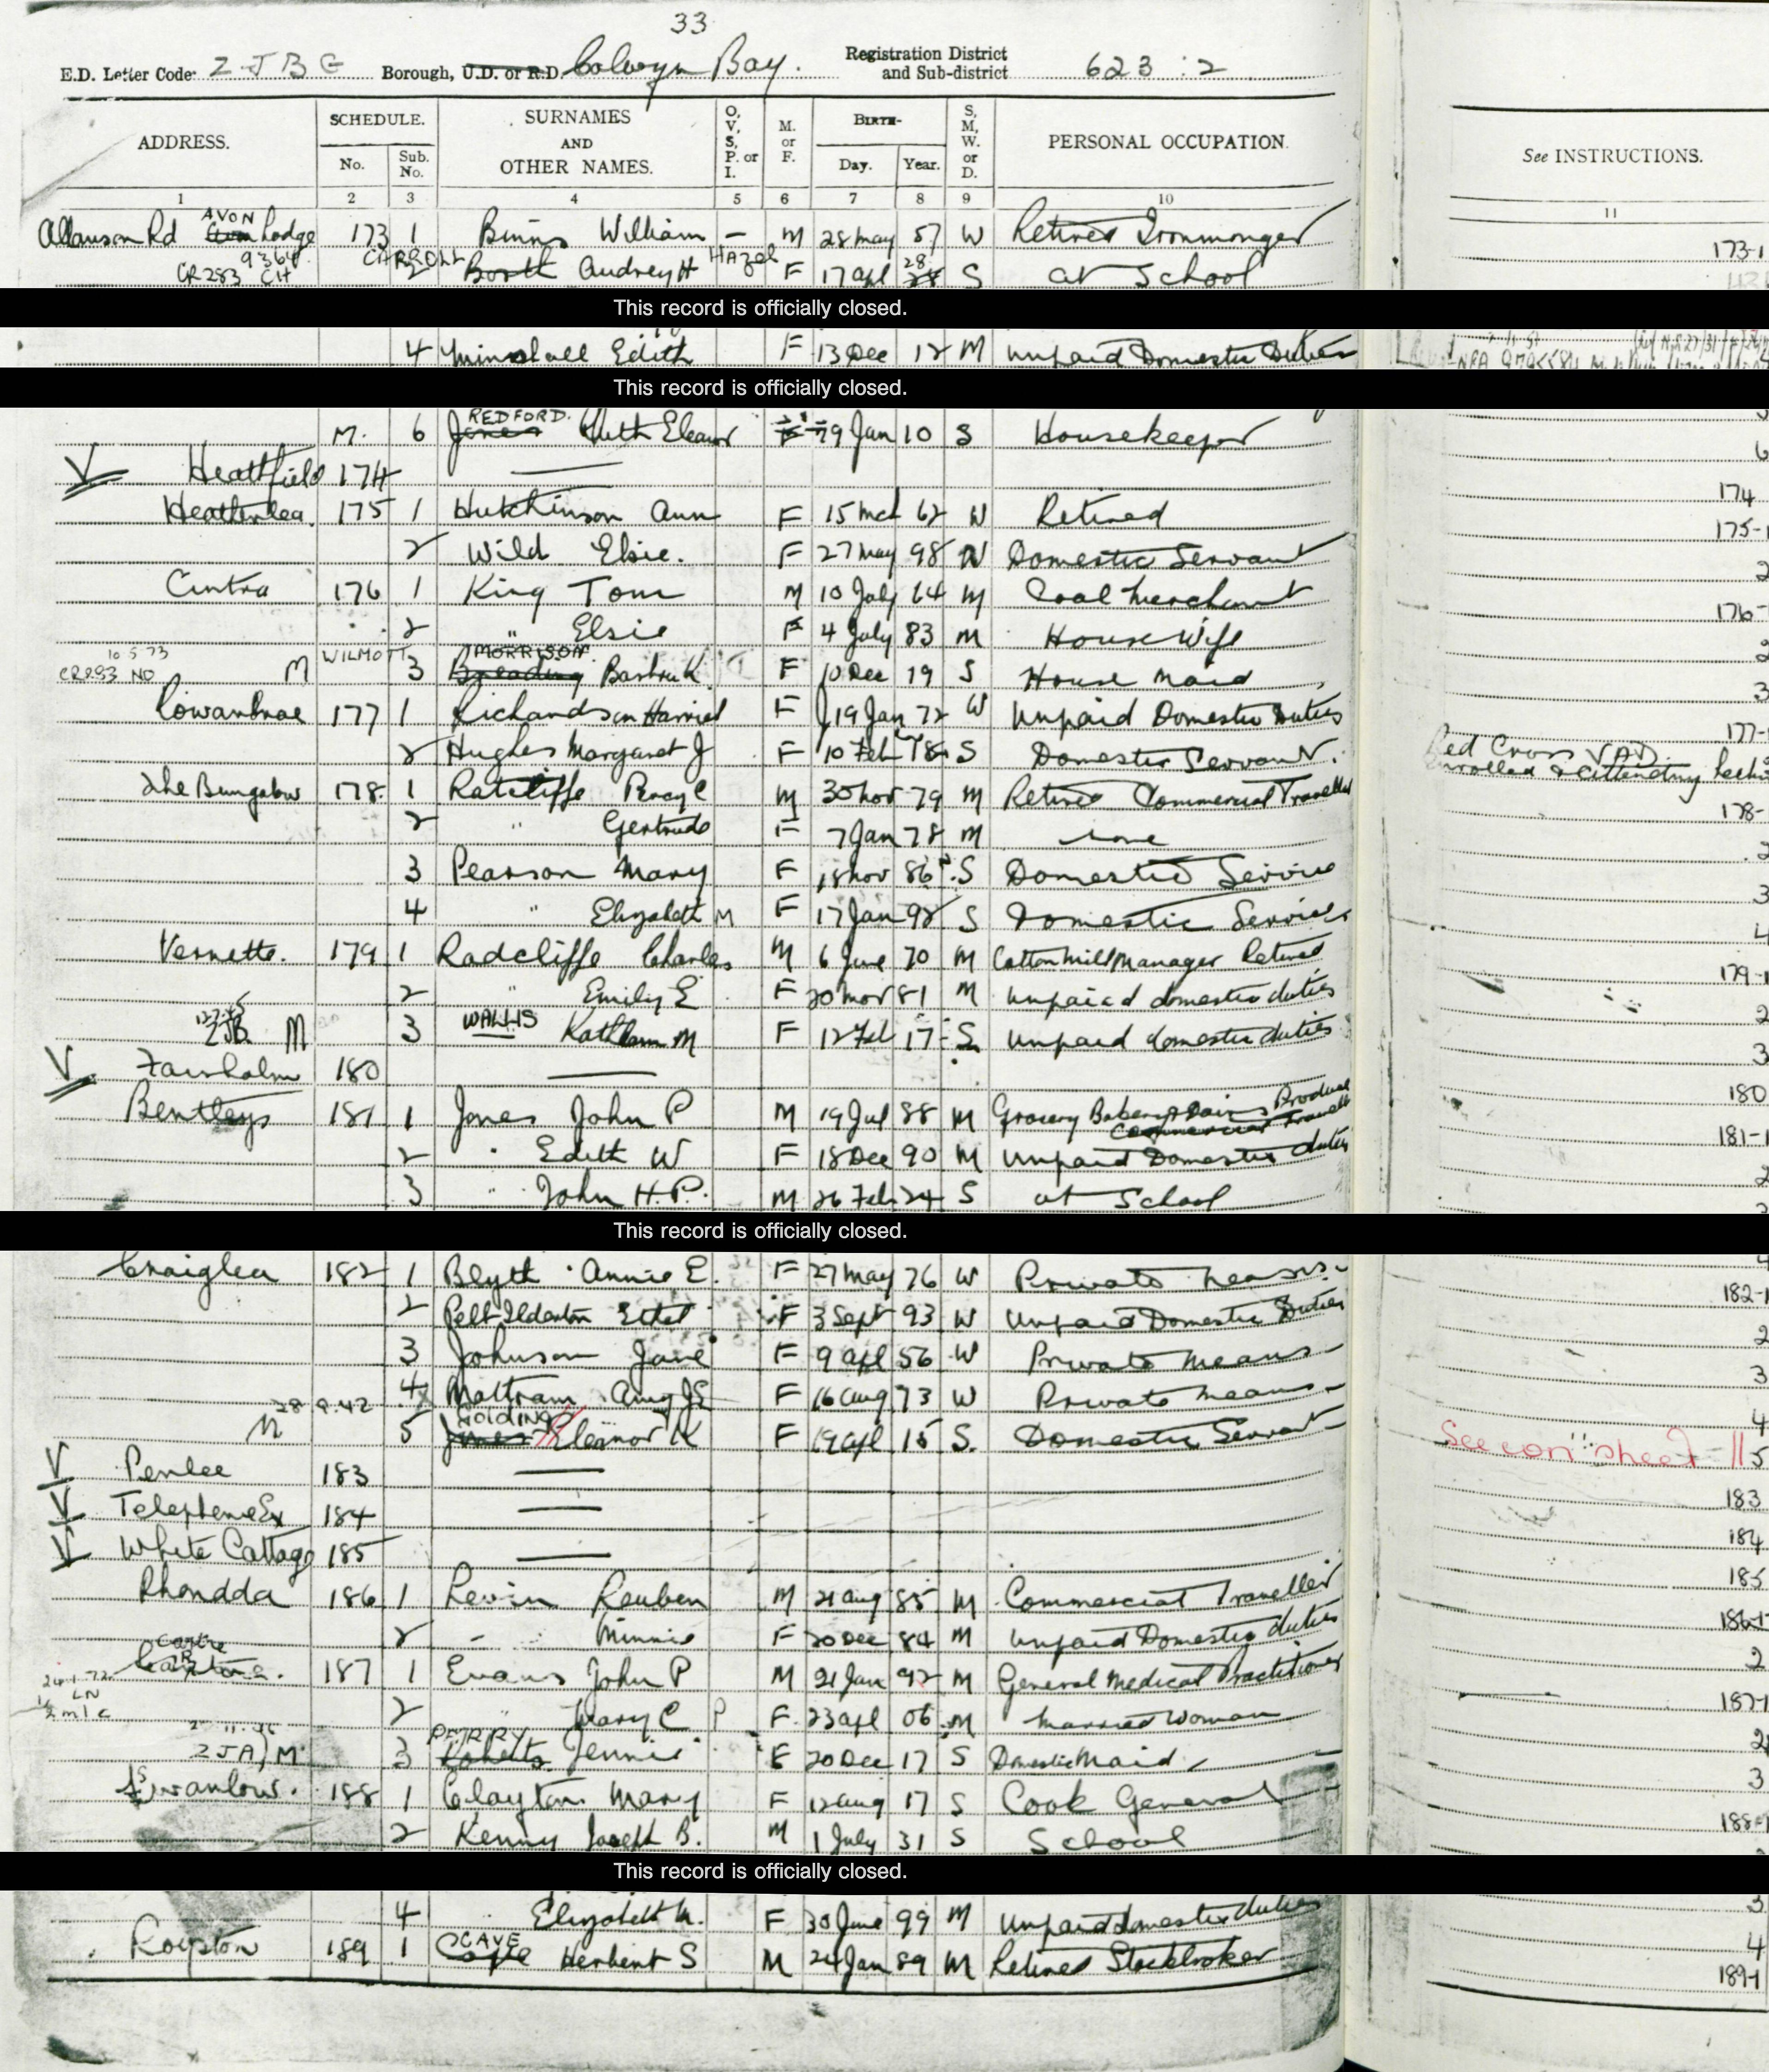 33
E.D. Letter Code 2 J B G Borough, U.D. or R.D Colwyn Bay. Registration District and Sub-district 623 : 2
ADDRESS. SCHEDULE. SURNAMES AND OTHER NAMES. O, V, S, P. or I. M. or F. BIRTH- S, M, W. or D. PERSONAL OCCUPATION. See INSTRUCTIONS.
No. Sub. No. Day. Year.
1 2 3 4 5 6 7 8 9 10 11
Allanson Rd AVON Lodge 173 1 Binns William — M 28 May 57 W Retired Ironmonger 173-1
CR283 CH CARROLL 2 Booth Audrey H HAZEL F 17 Apl 28 S at School
This record is officially closed.
4 Minshall Edith F 13 Dec 12 M Unpaid Domestic Duties
This record is officially closed.
M. 6 Jones REDFORD. Ruth Eleanor F 29 Jan 10 S Housekeeper 6
V Heathfield 174 — 174
Heatherlea. 175 1 Hutchinson Ann F 15 Mch 62 W Retired 175-1
2 Wild Elsie. F 27 May 98 W Domestic Servant 2
Cintra 176 1 King Tom M 10 July 64 M Coal Merchant 176-1
2 " Elsie F 4 July 83 M House Wife 2
10 5 73 CR283 NO M WILMOTT 3 MORRISON Barbra K. F 10 Dec 19 S House Maid 3
Rowanbrae 177 1 Richardson Harriet F 19 Jan 72 W Unpaid Domestic Duties 177-1
2 Hughes Margaret J F 10 Feb 78 S Domestic Servant. Red Cross VAD. Enrolled & attending
The Bungalow 178. 1 Ratcliffe Percy C M 30 Nov 79 M Retired Commercial Traveller 178-
2 " Gertrude F 7 Jan 78 M none 2
3 Pearson Mary F 18 Nov 86 S Domestic Service 3
4 " Elizabeth M F 17 Jan 98 S Domestic Service 4
Vernette. 179 1 Radcliffe Charles M 6 June 70 M Cotton Mill Manager Retired 179-1
2 " Emily E F 20 Nov 81 M unpaid domestic duties 2
2JB M 3 WALLIS Kathleen M F 12 Feb 17 S unpaid domestic duties 3
V Fairholm 180 — 180
Bentleys 181 1 Jones John P M 19 Jul 88 M Grocery Bakery & Dairy Produce Commercial Travell 181-1
2 " Edith W F 18 Dec 90 M Unpaid Domestic duties 2
3 " John H.P. M 26 Feb 24 S at School
This record is officially closed.
Craiglea 182 1 Blyth Annie E. F 27 May 76 W Private Means. 182-1
2 Pelt-Ilderton Ethel F 3 Sept 93 W Unpaid Domestic Duties 2
3 Johnson Jane F 9 Apl 56 W Private Means 3
4 Mottram Amy J E F 16 Aug 73 W Private Means 4
28 9.42 M 5 Jones HOLDING Eleanor K F 19 Apl 15 S. Domestic Servant See con sheet 5
V Penlee 183 — 183
V Telephone Ex 184 — 184
V White Cottage 185 — 185
Rhondda 186 1 Levin Reuben M 21 Aug 85 M Commercial Traveller 186-1
2 " Minnie F 20 Dec 84 M Unpaid Domestic duties 2
187 1 Evans John P M 21 Jan 92 M General Medical Practitioner 187-1
24.1.72. LN
2 " Mary C F 23 Apl 06 M Married Woman 2
2JA M 3 Roberts PERRY Jennie F 20 Dec 17 S Domestic Maid 3
Swanlow. 188 1 Clayton Mary F 12 Aug 17 S Cook General 188-1
2 Kenny Joseph B. M 1 July 31 S School
This record is officially closed.
4 Elizabeth M. F 30 June 99 M Unpaid domestic duties 4
Royston 189 1 CAVE Herbert S M 24 Jan 89 M Retired Stockbroker 189-1